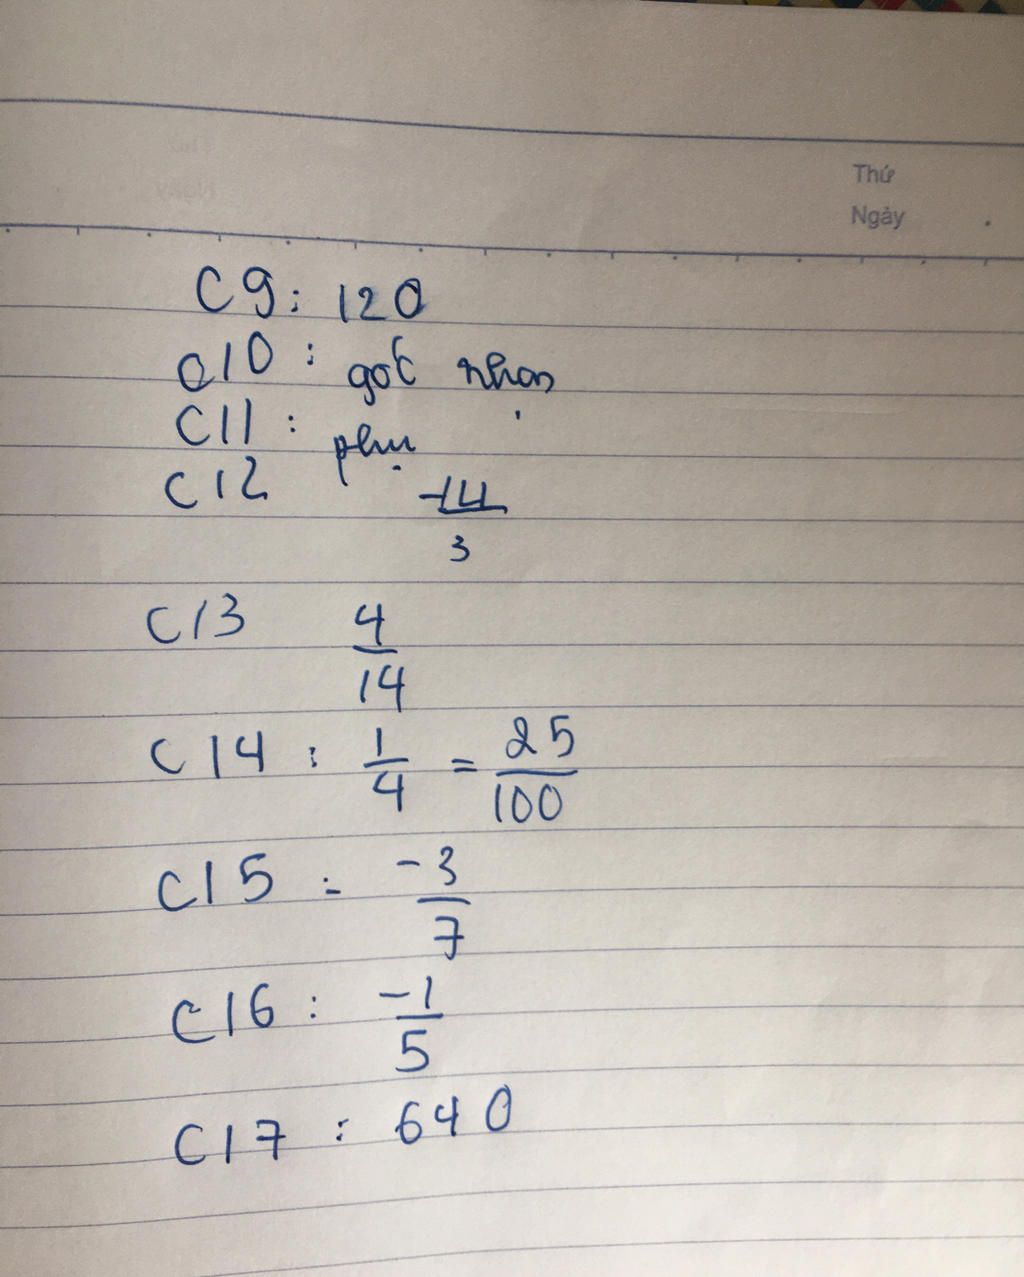 Thứ
Ngày
C9: 120
C10: góc nhọn
C11: phụ
C12 -14/3
C13 4/14
C14: 1/4 = 25/100
C15: -3/7
C16: -1/5
C17: 640